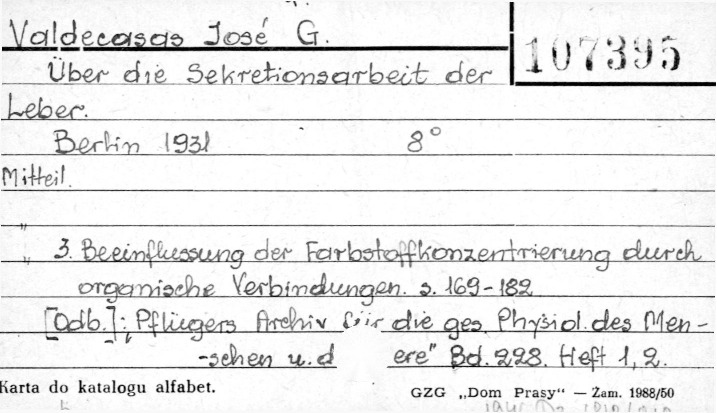 Valdecasas José G.
107395
Über die Sekretionsarbeit der
Leber.
Berlin 1931 8°
Mitteil.
" 3. Beeinflussung der Farbstoffkonzentrierung durch
organische Verbindungen. s. 169-182
[Odb.]: Pflügers Archiv für die ges. Physiol. des Men-
-schen u. d ere" Bd. 228. Heft 1, 2.
Karta do katalogu alfabet.
GZG „Dom Prasy" — Zam. 1988/50